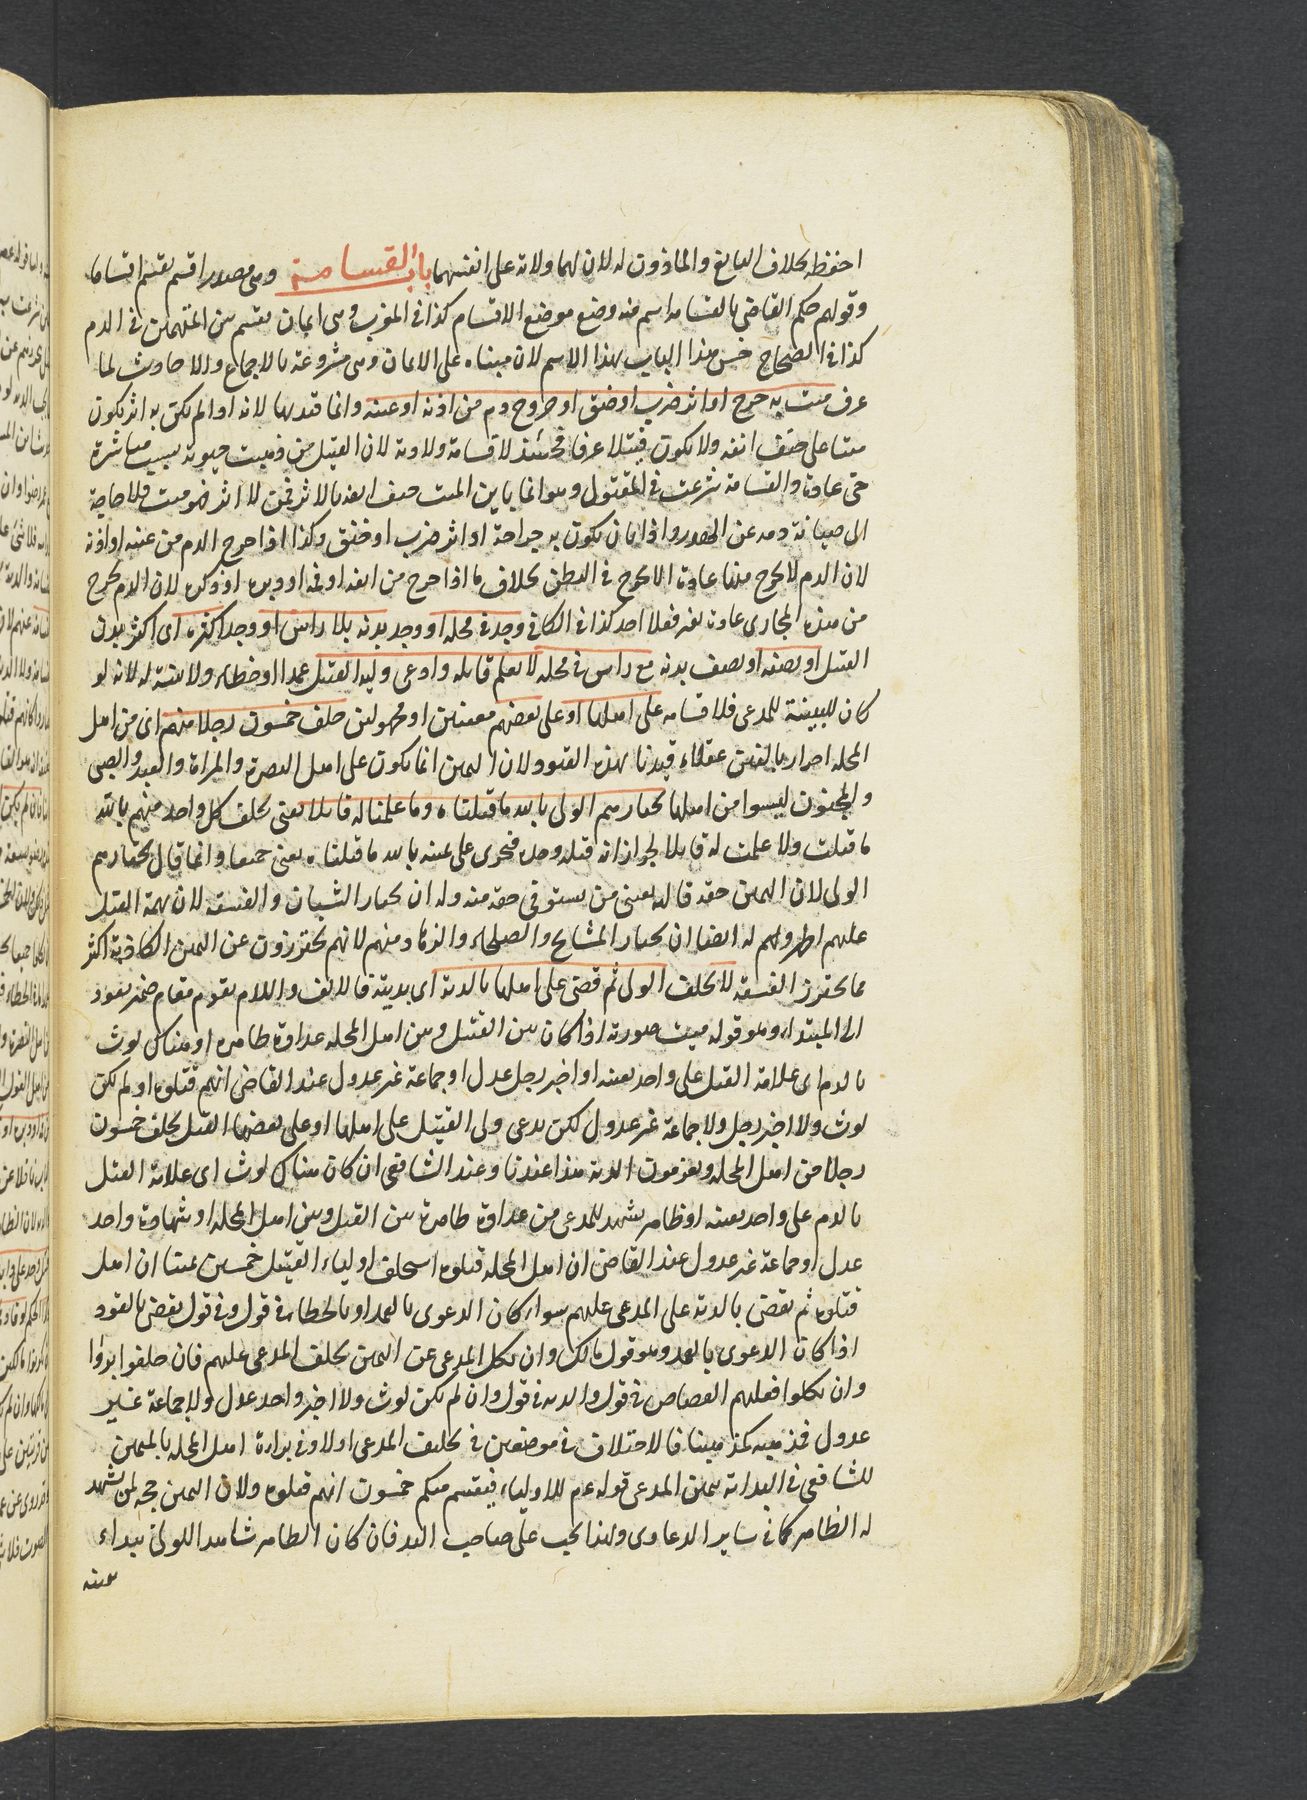 احفظ بخلاف البالغ والماذون له لان لهما ولاية على انفسهما باب القسامة وهى مصدر اقسم يقسم اقساما
وقولهم حكم القاضى بالقسامة اسم منه وضع موضع الاقسام كذا فى المغرب وهى ايمان تقسم بين المتهمين فى الدم
كذا فى الصحاح خص هذا الباب بهذا الاسم لان مبناه على الايمان وهى مشروعة بالاجماع والاحاديث لما
عرف ميت به جرح او اثر ضرب او خنق او خروج دم من اذنه او عينه وانما قيد بها لانه لو لم يكن به اثر يكون
ميتا على حتف انفه ولا يكون قتيلا عرفا فحينئذ لا قسامة ولا دية لان القتيل من فميت حيوته بسبب مباشرة
حى عادة والقسامة شرعت فى المقتول وهو انما يباين الميت حتف انفه بالاثر فمن لا اثر فهو ميت فلا حاجة
الى صيانة دمه عن الهدر والاثر بان يكون به جراحة او اثر ضرب او خنق وكذا اذا خرج الدم من عينه او اذنه
لان الدم لا يخرج منها عادة الا بجرح فى البطن بخلاف ما اذا خرج من انفه او فمه او دبره او ذكره لان الدم يخرج
من هذه المجارى عادة بغير فعل احد كذا فى الكافى وجد فى محله او وجد بدنه بلا راس او وجد اكثره اى اكثر بدن
القتيل او نصفه او نصف بدنه مع راس فى محله لا يعلم قاتله وادعى وليه القتيل عمدا او خطاء ولا بينة له لانه لو
كان البينة للمدعى فلا قسامة على اهلها او على بعضهم معينين او مجهولين حلف خمسون رجلا منهم اى من اهل
المحله احرار بالغين عقلاء قيدنا بهذه القيود لان اليمين انما يكون على اهل النصرة والمراة والعبد والصبى
والمجنون ليسوا من اهلها يختارهم الولى بالله ما قتلناه وما علمنا له قاتلا يعنى يحلف كل واحد منهم بالله
ما قتلت ولا علمت له قاتلا لجواز انه قتله وحده فيجرى على يمينه بالله ما قتلناه يعنى جميعا وانما قال يختارهم
الولى لان اليمين حقه قاله يعنى من يستوفى حقه منه وله ان يختار الشبان والفسقة لان تهمة القتل
عليهم اظهر ولهم له ايضا ان يختار المشايخ والصلحاء والزهاد منهم لانهم يحترزون عن اليمين الكاذبة اكثر
مما يحترز الفسقة لا يحلف الولى ثم قضى على اهلها بالدية اى بديته فالالف واللام يقوم مقام ضمير يعود
الى المبتداء وهو قوله ميت صورته اذا كان بين القتيل وبين اهل المحله عداوة ظاهرة او هناك لوث
بالدم اى علامة القتل على واحد بعينه او اخبر رجل عدل او جماعة غير عدول عند القاضى انهم قتلوه او لم يكن
لوث ولا اخبر رجل ولا جماعة غير عدول لكن يدعى ولى القتيل على اهلها او على بعضها القتل يحلف خمسون
رجلا من اهل المحله ويغرمون الدية هذا عندنا وعند الشافعى ان كان هناك لوث اى علامة القتل
بالدم على واحد بعينه او ظاهر يشهد للمدعى من عداوة ظاهرة بين القتيل وبين اهل المحله او شهادة واحد
عدل او جماعة غير عدول عند القاضى ان اهل المحله قتلوه استحلف اولياء القتيل خمسين يمينا ان اهل
قتلوه ثم يقضى بالدية على المدعى عليهم سواء كان الدعوى بالعمد او بالخطاء فى قول وفى قول يقضى بالقود
اذا كان الدعوى بالعمد وهو قول مالك وان نكل المدعى عن اليمين يحلف المدعى عليهم فان حلفوا برؤا
وان نكلوا فعليهم القصاص فى قول والدية فى قول وان لم يكن لوث ولا اخبر واحد عدل ولا جماعة غير
عدول فمذهبه كمذهبنا فالاختلاف فى موضعين فى تحليف المدعى اولا وفى براءة اهل المحله باليمين
للشافعى فى البداية بيمين المدعى قوله عم للاولياء فيقسم منكم خمسون انهم قتلوه ولان اليمين حجة لمن يشهد
له الظاهر كما فى ساير الدعاوى ولهذا يجب على صاحب اليد فان كان الظاهر شاهدا للولى يبداء
يمينه